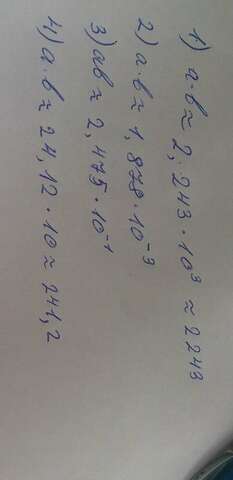 1) a·b ≈ 2,243·10³ ≈ 2243
2) a·b ≈ 1,878·10⁻³
3) ab ≈ 2,475·10⁻¹
4) a·b ≈ 24,12·10 ≈ 241,2